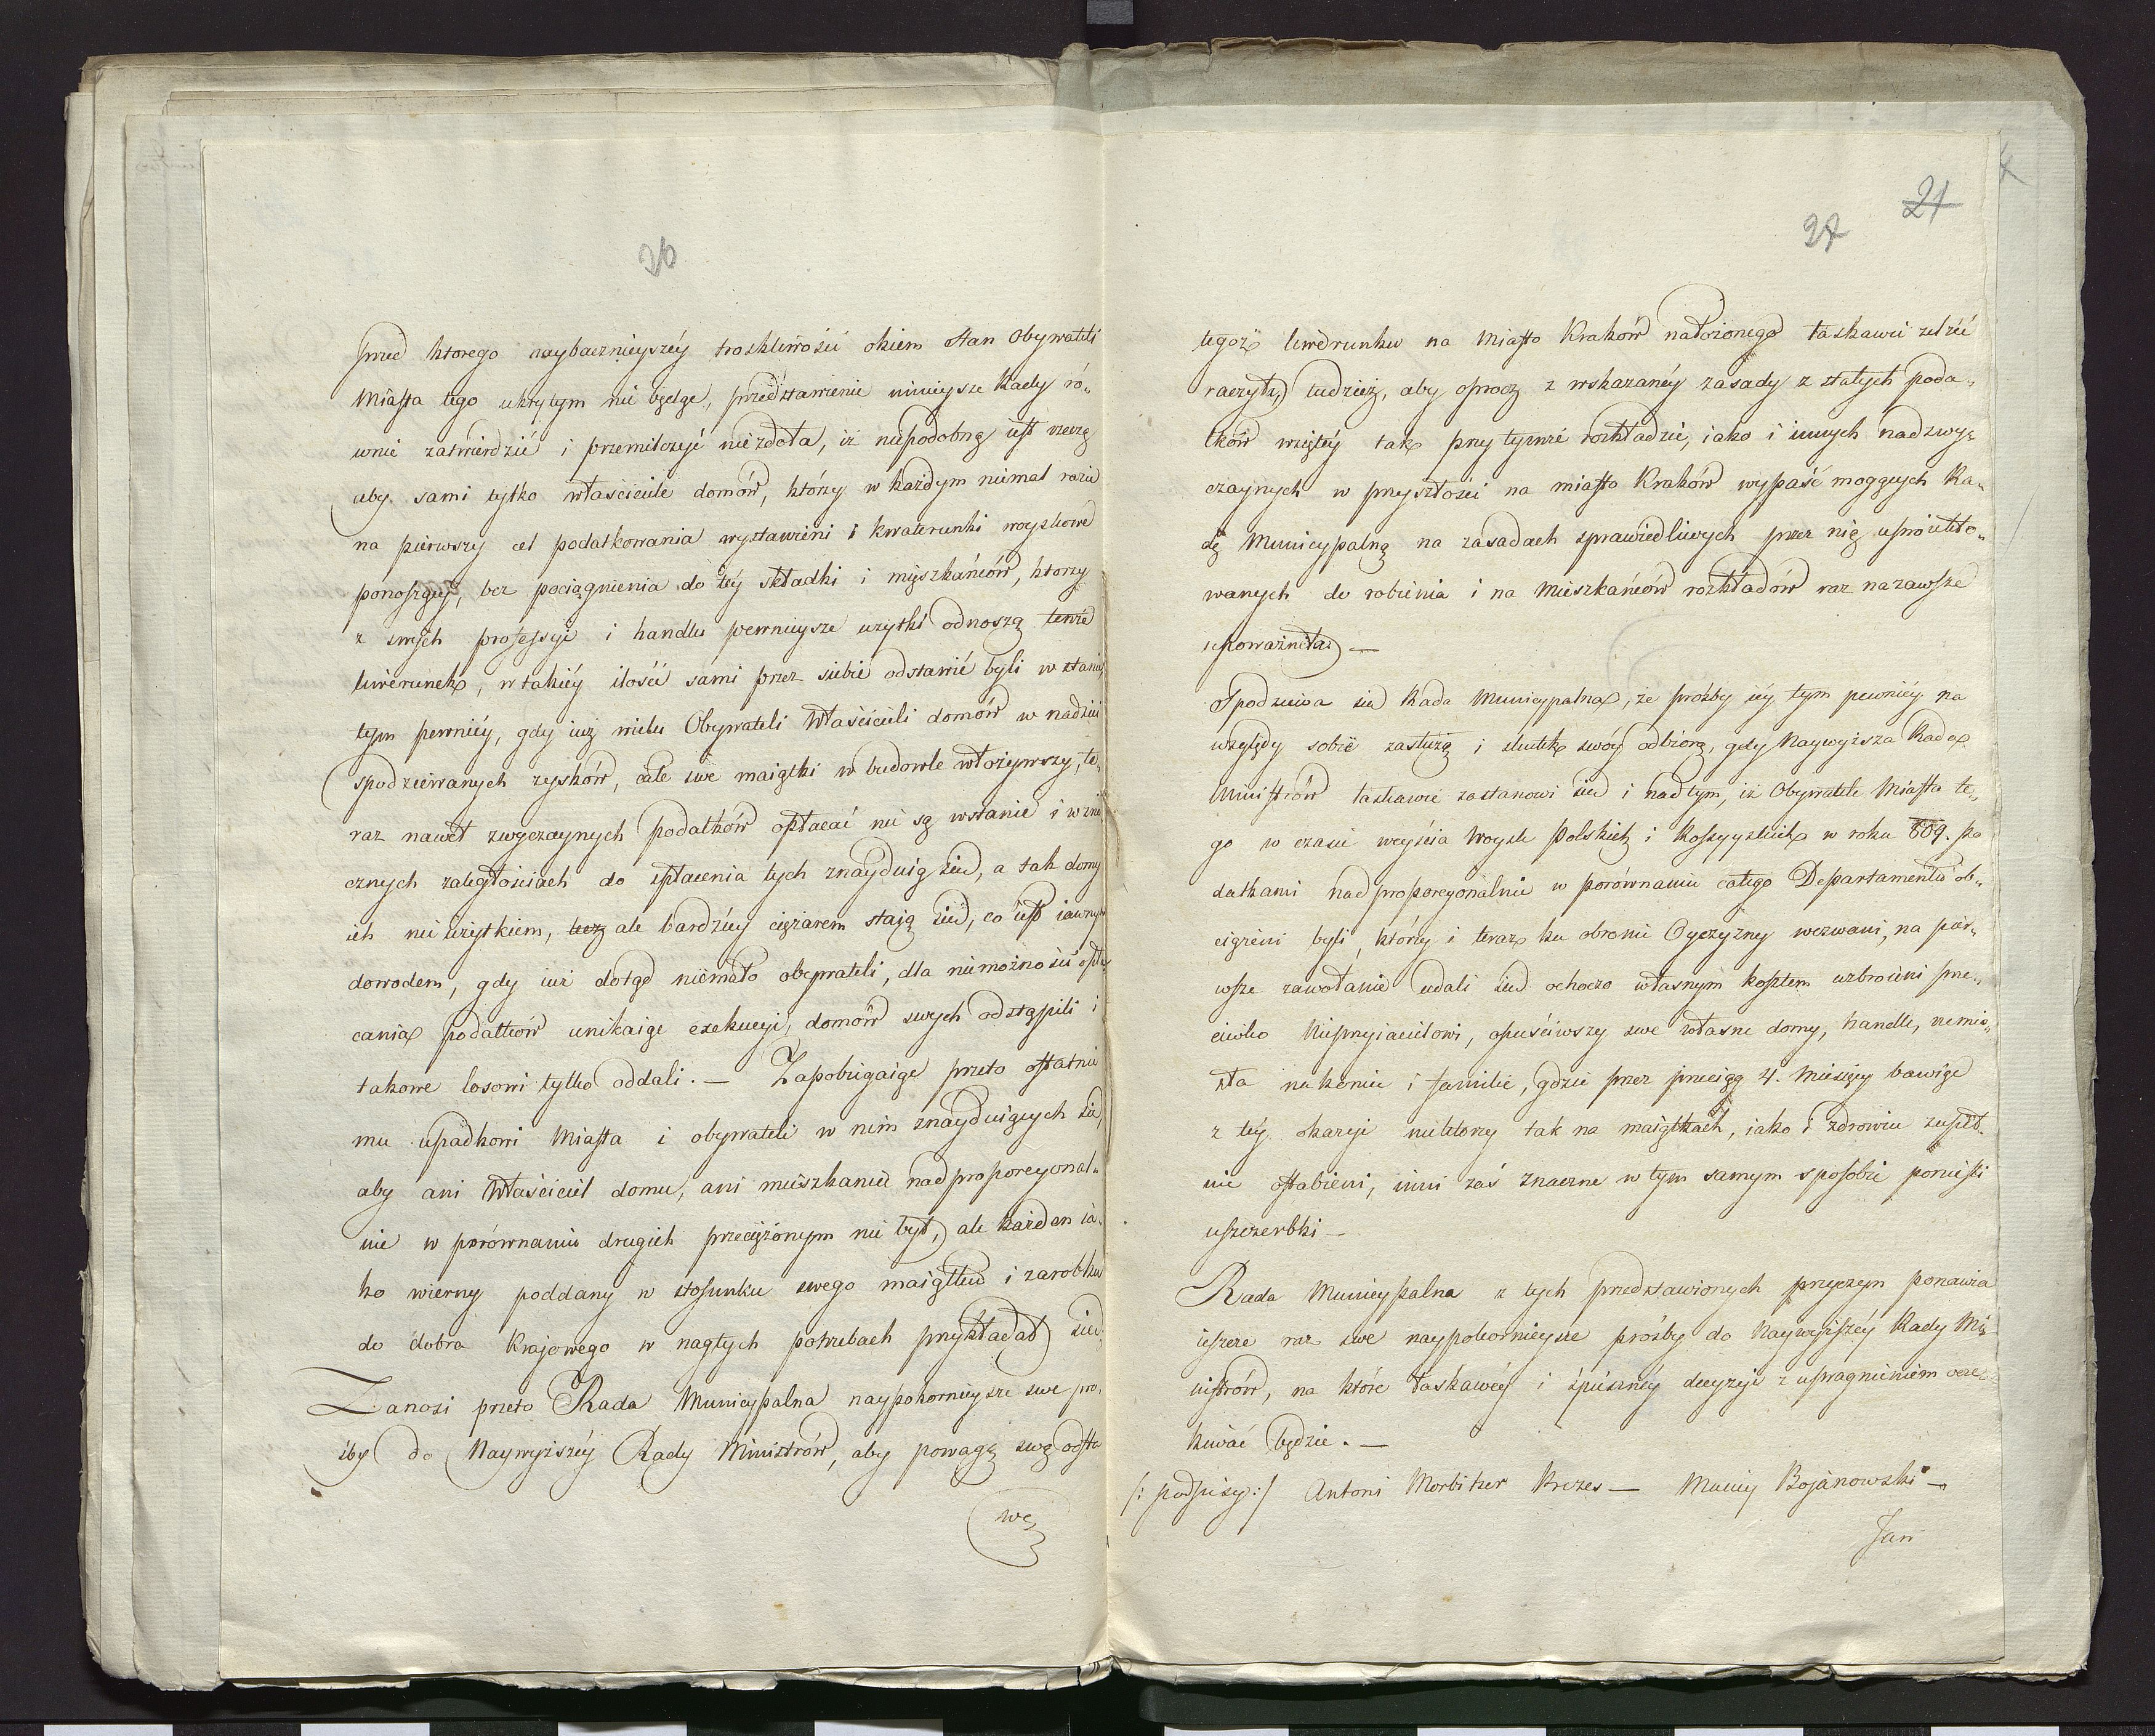 26
przed ktorego naybacznieyszéy troskliwości okiem stan Obywateli
Miasta tego ukrytym nie będąc, przedstawienie ninieysze Rady ró„
wnie zatwierdzić i przemilczyć niezdoła, iż niepodobną iest rzeczą
aby sami tylko właściciele domów, którzy w każdym niemal razie
na pierwszy cel podatkowania wystawieni i kwaterunki woyskowe
ponosząc, bez pociągnienia do téy składki i mięszkańców, ktorzy
z swych professyi i handlu pewnieysze użytki odnoszą tenże
liwerunek, w takiéy ilości sami przez siebie odstawić byli w stanie,
tym pewniéy, gdy iuż wielu Obywateli Właścicieli domów w nadziei
spodziewanych zysków, całe swe maiątki w budowle włożywszy, te„
raz nawet zwyczaynych podatków opłacać nie są wstanie i w zna
cznych zaległościach do spłacenia tych znayduią sie, a tak domy
ich nie użytkiem, lecz ale bardziey ciężarem staią sie, co iest iawnym
dowodem, gdy iuż dotąd niemało obywateli, dla niemożności opła
cania podatków unikaiąc exekucyi, domów swych odstąpili i
takowe losowi tylko oddali. — Zapobiegaiąc przeto ostatnie
mu upadkowi Miasta i obywateli w nim znayduiących sie,
aby ani Właściciel domu, ani mieszkaniec nadproporcyonal„
nie w porównaniu drugich przeciążonym nie był, ale każden ia„
ko wierny poddany w stosunku swego maiątku i zarobku
do dobra Krajowego w nagłych potrzebach przykładał sie.
Zanosi przeto Rada Municypalna naypokornieysze swe pro„
źby do Naywyższéy Rady Ministrów, aby powagą swą odsta
we
21
27
tegoż liwerunku na Miasto Kraków nałożonego łaskawie zelżeć
raczyła, tudzież, aby oprocz z wskazanéy zasady z stałych poda„
tków wziętéy tak przy tymże rozkładzie, iako i innych nadzwy„
czaynych w przyszłości na miasto Kraków wypaść mogących Ra„
dę Municypalną na zasadach sprawiedliwych przez nią uproiekto„
wanych do robienia i na Mieszkańców rozkładów raz nazawsze
upoważniła —
Spodziewa sie Rada Municypalna, że prośby iéy tym pewniéy na
względy sobie zasłużą i skutek swóy odbiorą, gdy Naywyższa Rada
Ministrów łaskawie zastanowi sie i nad tym, iż Obywatele Miasta te„
go w czasie weyścia Woysk Polskich i Rossyyskich w roku 809. po
datkami nadproporcyonalnie w porównaniu całego Departamentu ob„
ciążeni byli, którzy i teraz ku obronie Oyczyzny wezwani, na pier„
wsze zawołanie udali sie ochoczo własnym kosztem uzbroieni prze„
ciwko Nieprzyiacielowi, opuściwszy swe własne domy, handle, rzemio„
sła nakoniec i familie, gdzie przez przeciąg 4. Miesięcy bawiąc
z téy okazyi niektorzy tak na maiątkach, iako i zdrowiu zupeł„
nie osłabieni, inni zaś znaczne w tym samym sposobie ponieśli
uszczerbki —
Rada Municypalna z tych przedstawionych przyczyn ponawia
ieszcze raz swe naypokornieysze prośby do Naywyższéy Rady Mi„
nistrów, na które łaskawéy i śpieszńey decyzyi z upragnieniem ocze„
kiwać będzie. —
/: podpisy :/ Antoni Morbitzer Prezes — Maciey Bojanowski —
Jan